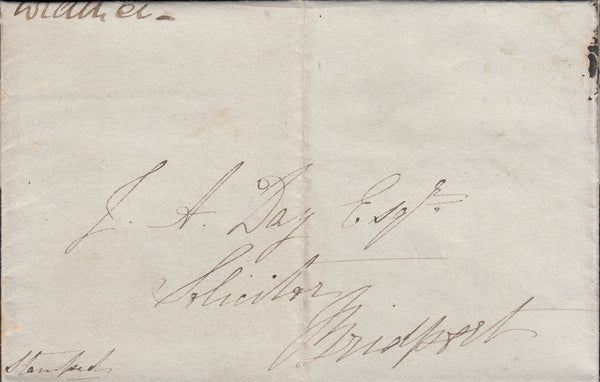 J. A. Day Esqr.
Solicitor
Bridport
Stamped